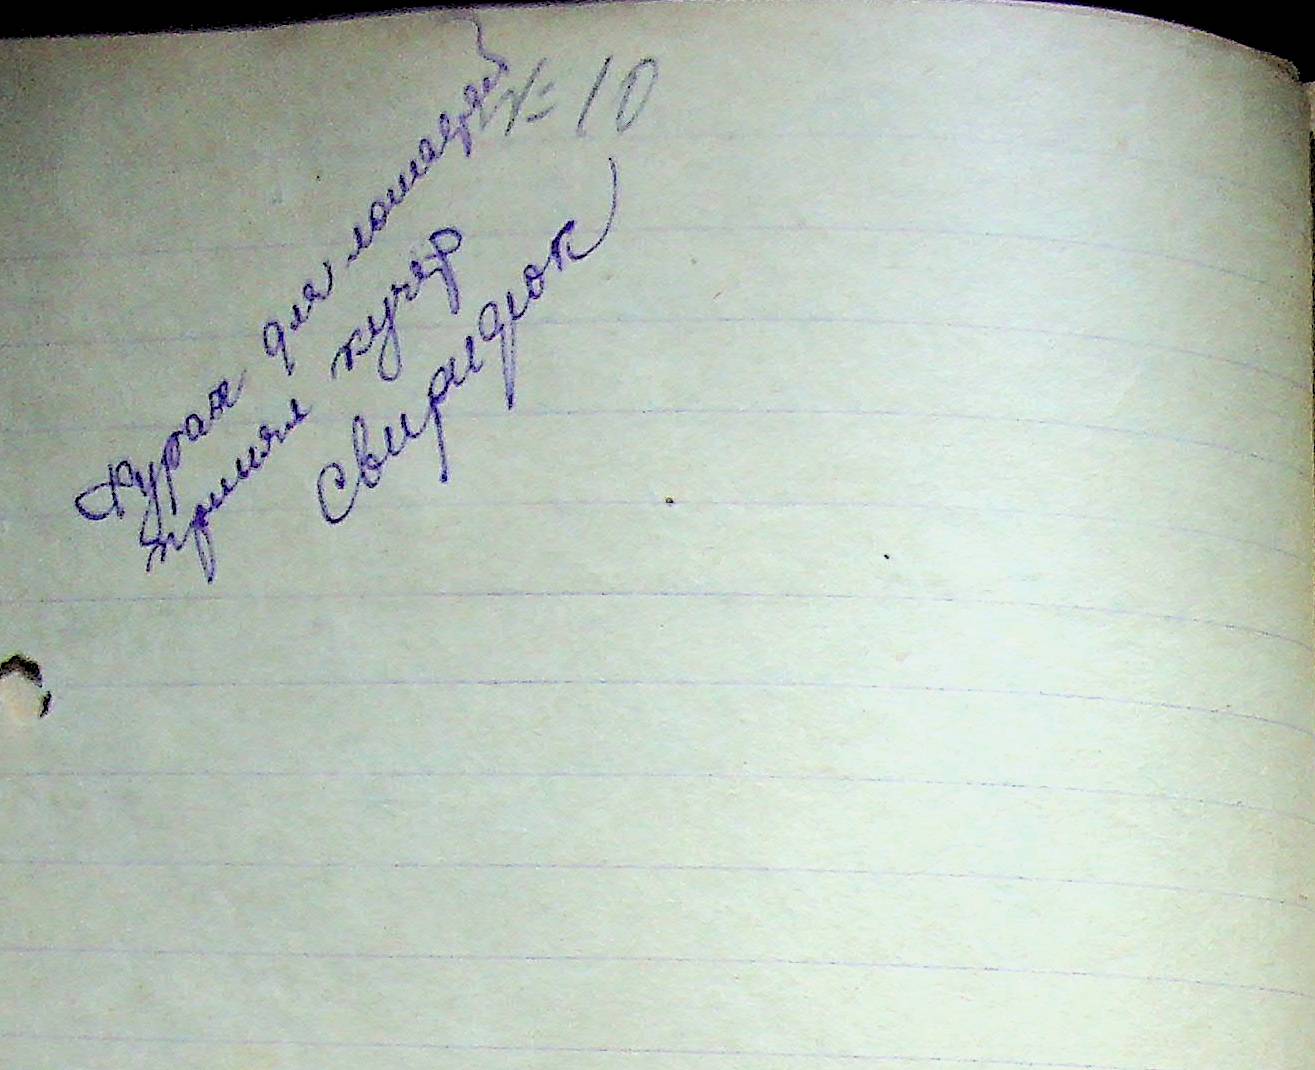 Фураж для лошадей
принял кучер
Свиридюк
10